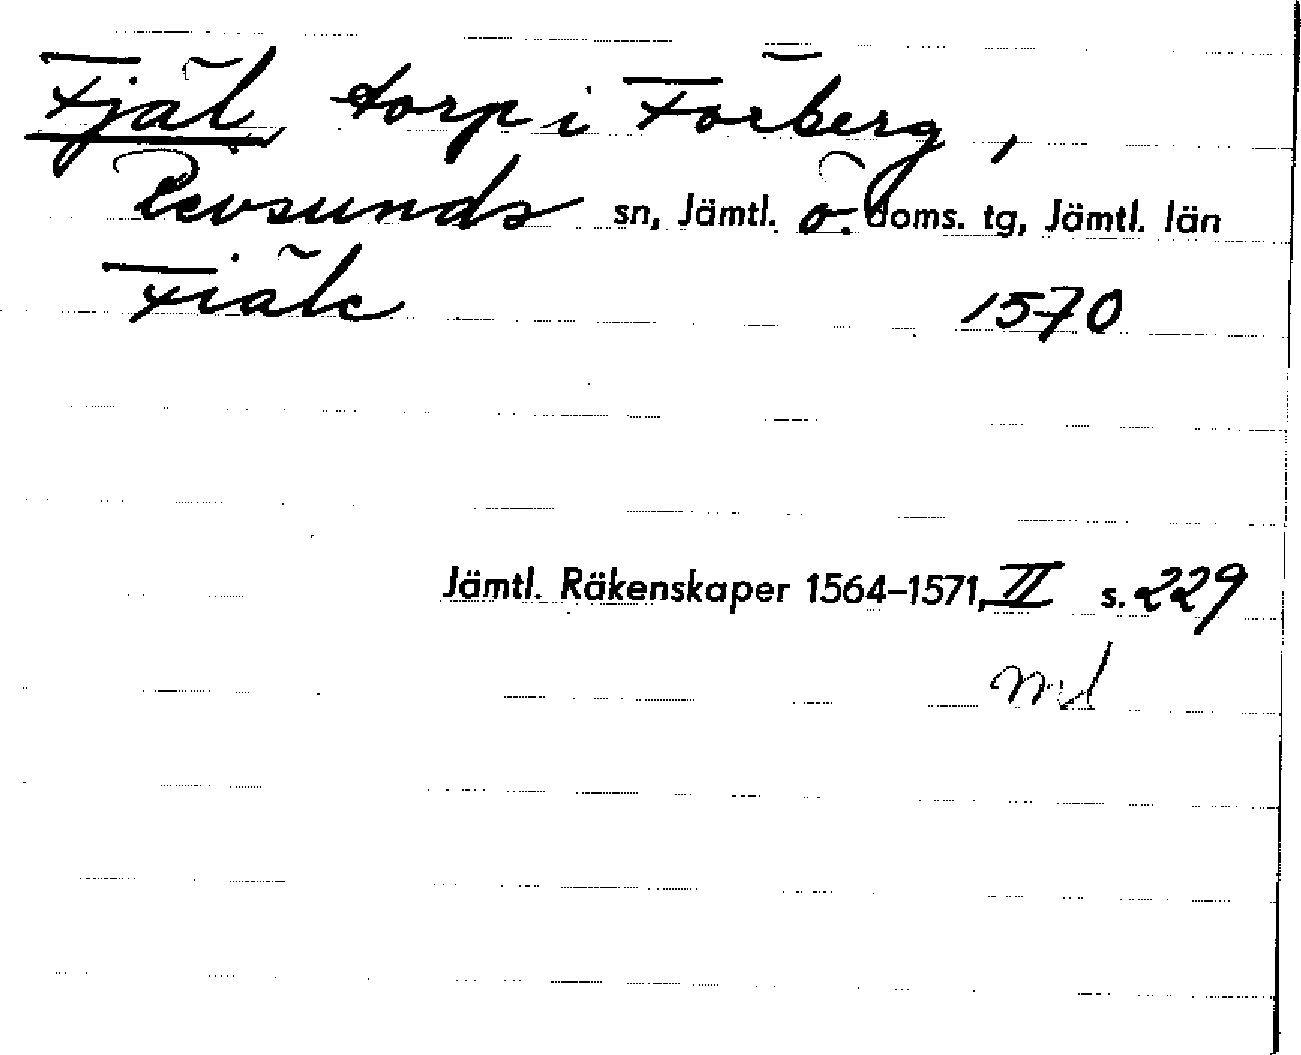 Fjäl, torp i Förberg,
Revsunds sn, Jämtl. ö. doms. tg, Jämtl. län
Fiäle 1570
Jämtl. Räkenskaper 1564–1571, II s. 229